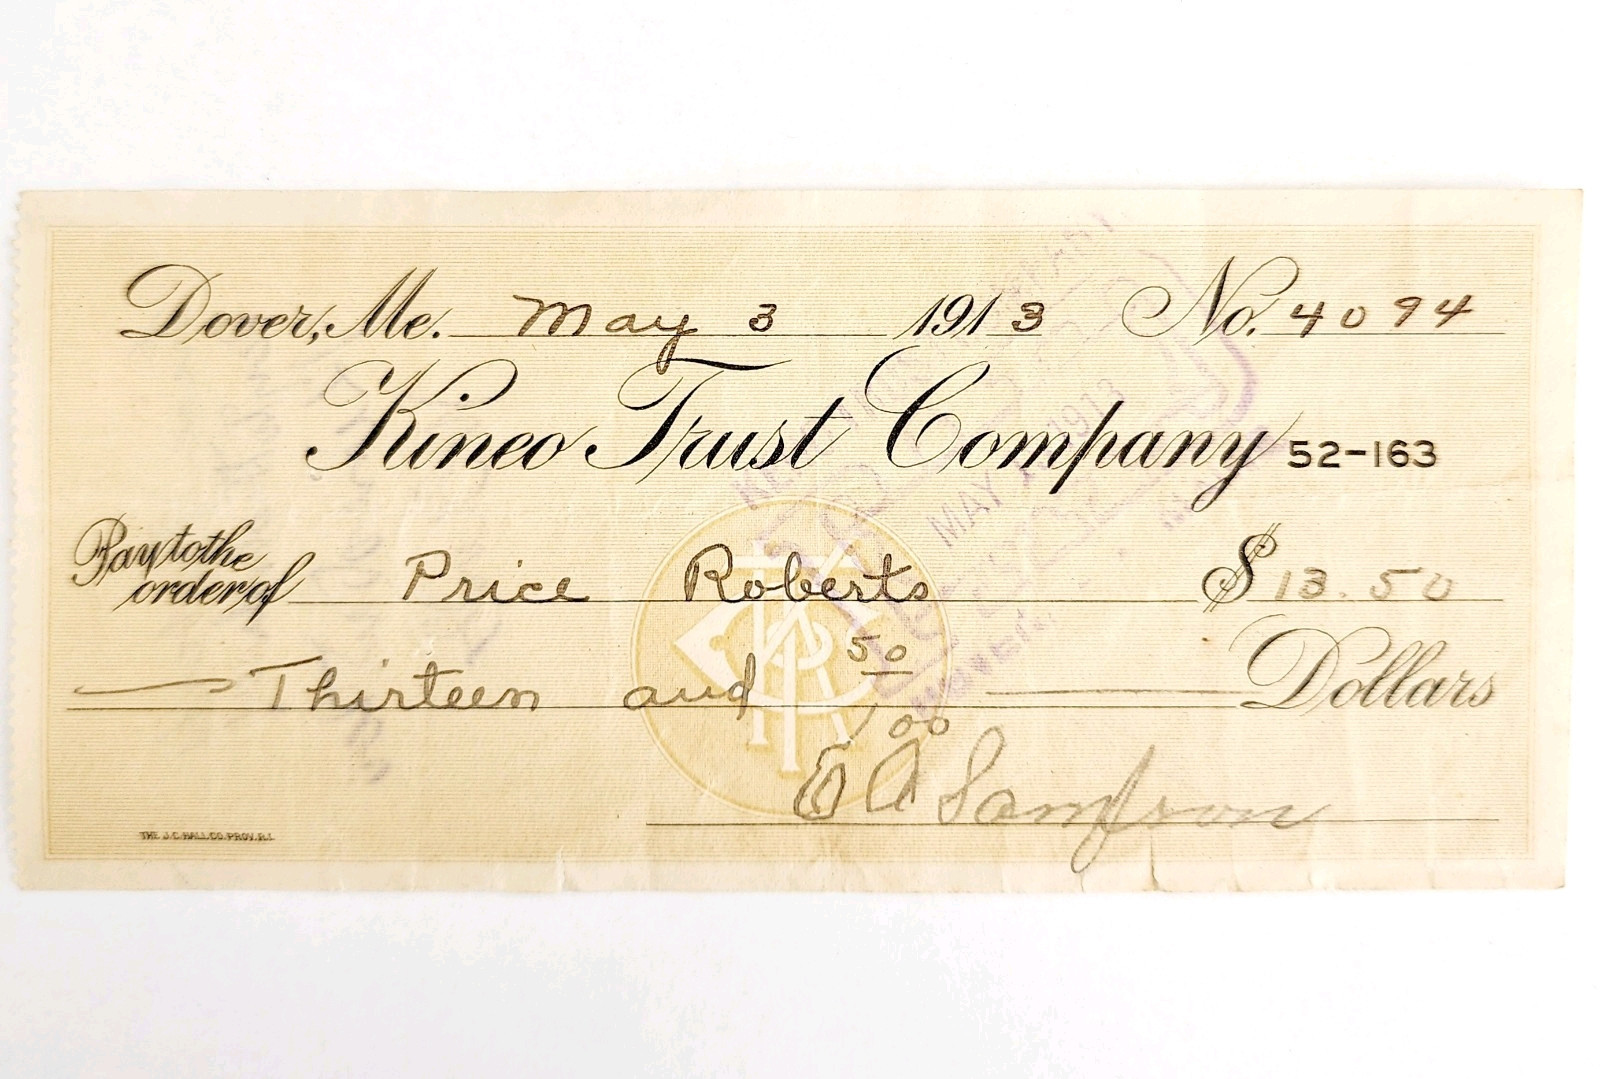 Dover, Me. May 3 1913 No. 4094
Kineo Trust Company 52-163
Pay to the
order of Price Roberts $13.50
Thirteen and 50/100 Dollars
E A Sampson
THE J.C. HALL CO. PROV. R.I.
MAY 1913